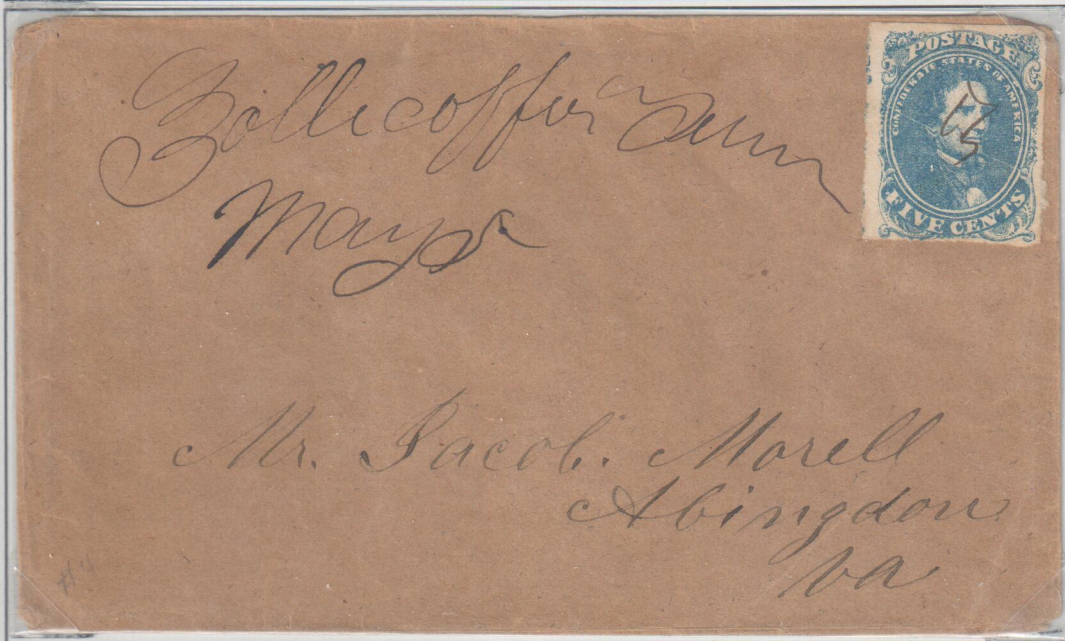 Zollicoffer Tenn
May 5
POSTAGE
CONFEDERATE STATES OF AMERICA
FIVE CENTS
Mr. Jacob. Morell
Abingdon
Va